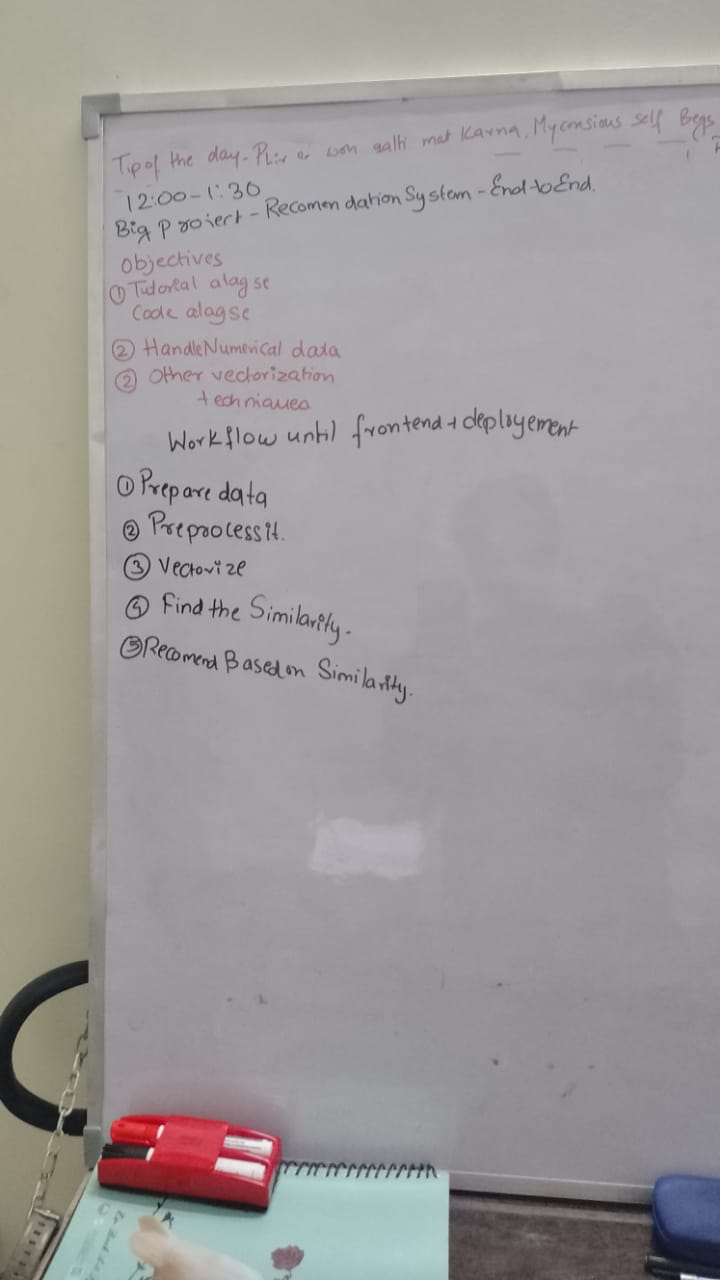 Tip of the day - Phir se won galti mat Karna. My consious self Begs
12:00-1:30
Big Project - Recomendation System - End to End.
Objectives
① Tutoreal alag se
Code alag se
② Handle Numerical data
② Other vectorization
techniques
Workflow until frontend + deployement
① Prepare data
② Preprocess it.
③ Vectorize
④ Find the Similarity.
⑤ Recomend Based on Similarity.